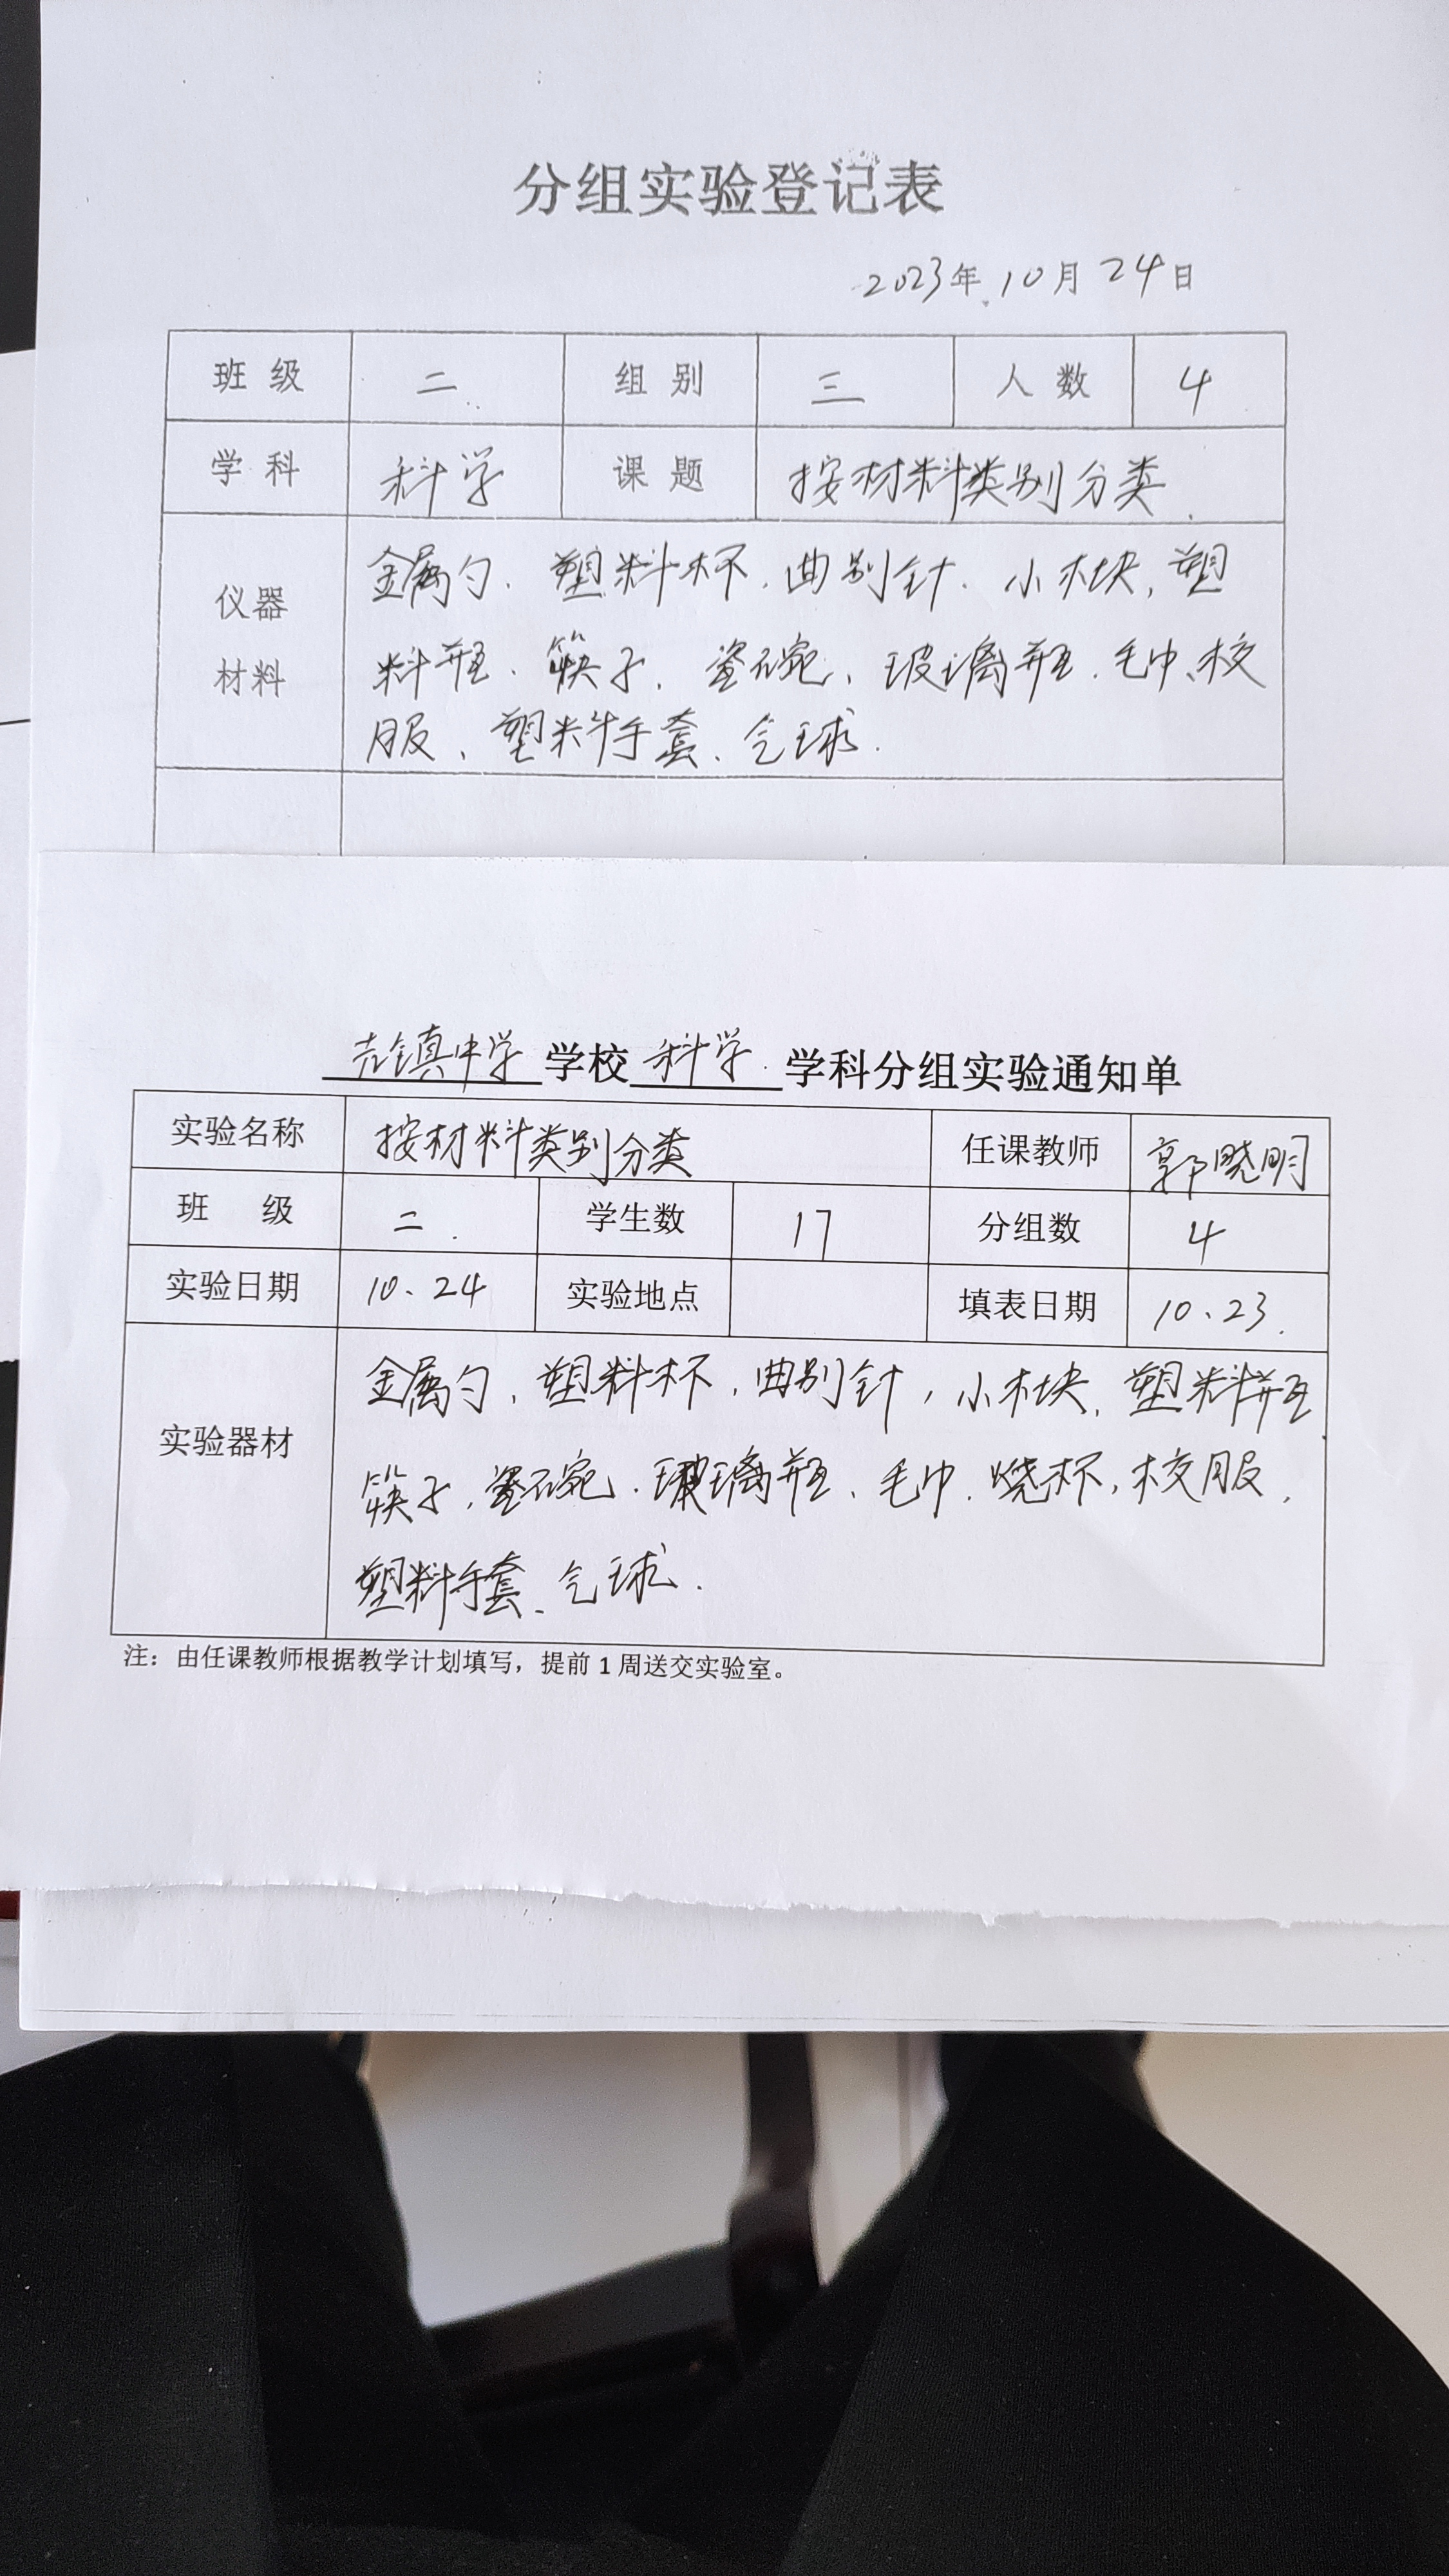 分组实验登记表
2023年10月24日
班级 二 组别 三 人数 4
学科 科学 课题 按材料类别分类
仪器材料
金属勺、塑料杯、曲别针、小木块、塑
料瓶、筷子、瓷碗、玻璃瓶、毛巾、校
服、塑料手套、气球.
镇中学 学校 科学 学科分组实验通知单
实验名称 按材料类别分类 任课教师 郭晓明
班级 二. 学生数 17 分组数 4
实验日期 10、24 实验地点 填表日期 10、23.
实验器材
金属勺、塑料杯、曲别针、小木块、塑料瓶
筷子、瓷碗、玻璃瓶、毛巾、烧杯、校服、
塑料手套、气球.
注：由任课教师根据教学计划填写，提前1周送交实验室。